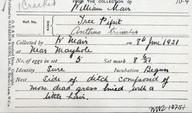 FROM THE COLLECTION OF
William Mair
Tree Pipit
Anthus
Collected by W Mair on 8th June 1921
Near Maybole
No. of eggs in set 5 Set mark 8/21
Identity Sure Incubation Begun
Nest Side of ditch composed of
moss dead grass lined with a
little hair.